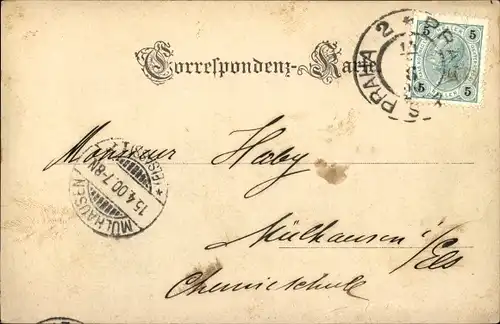 Correspondenz-Karte.
PRAHA 2
5 5
5 5
Monsieur Haby
MÜLHAUSEN
15.4.00.7-8N
* (ELSASS) 1 *
Mülhausen i/Els
Chemieschule